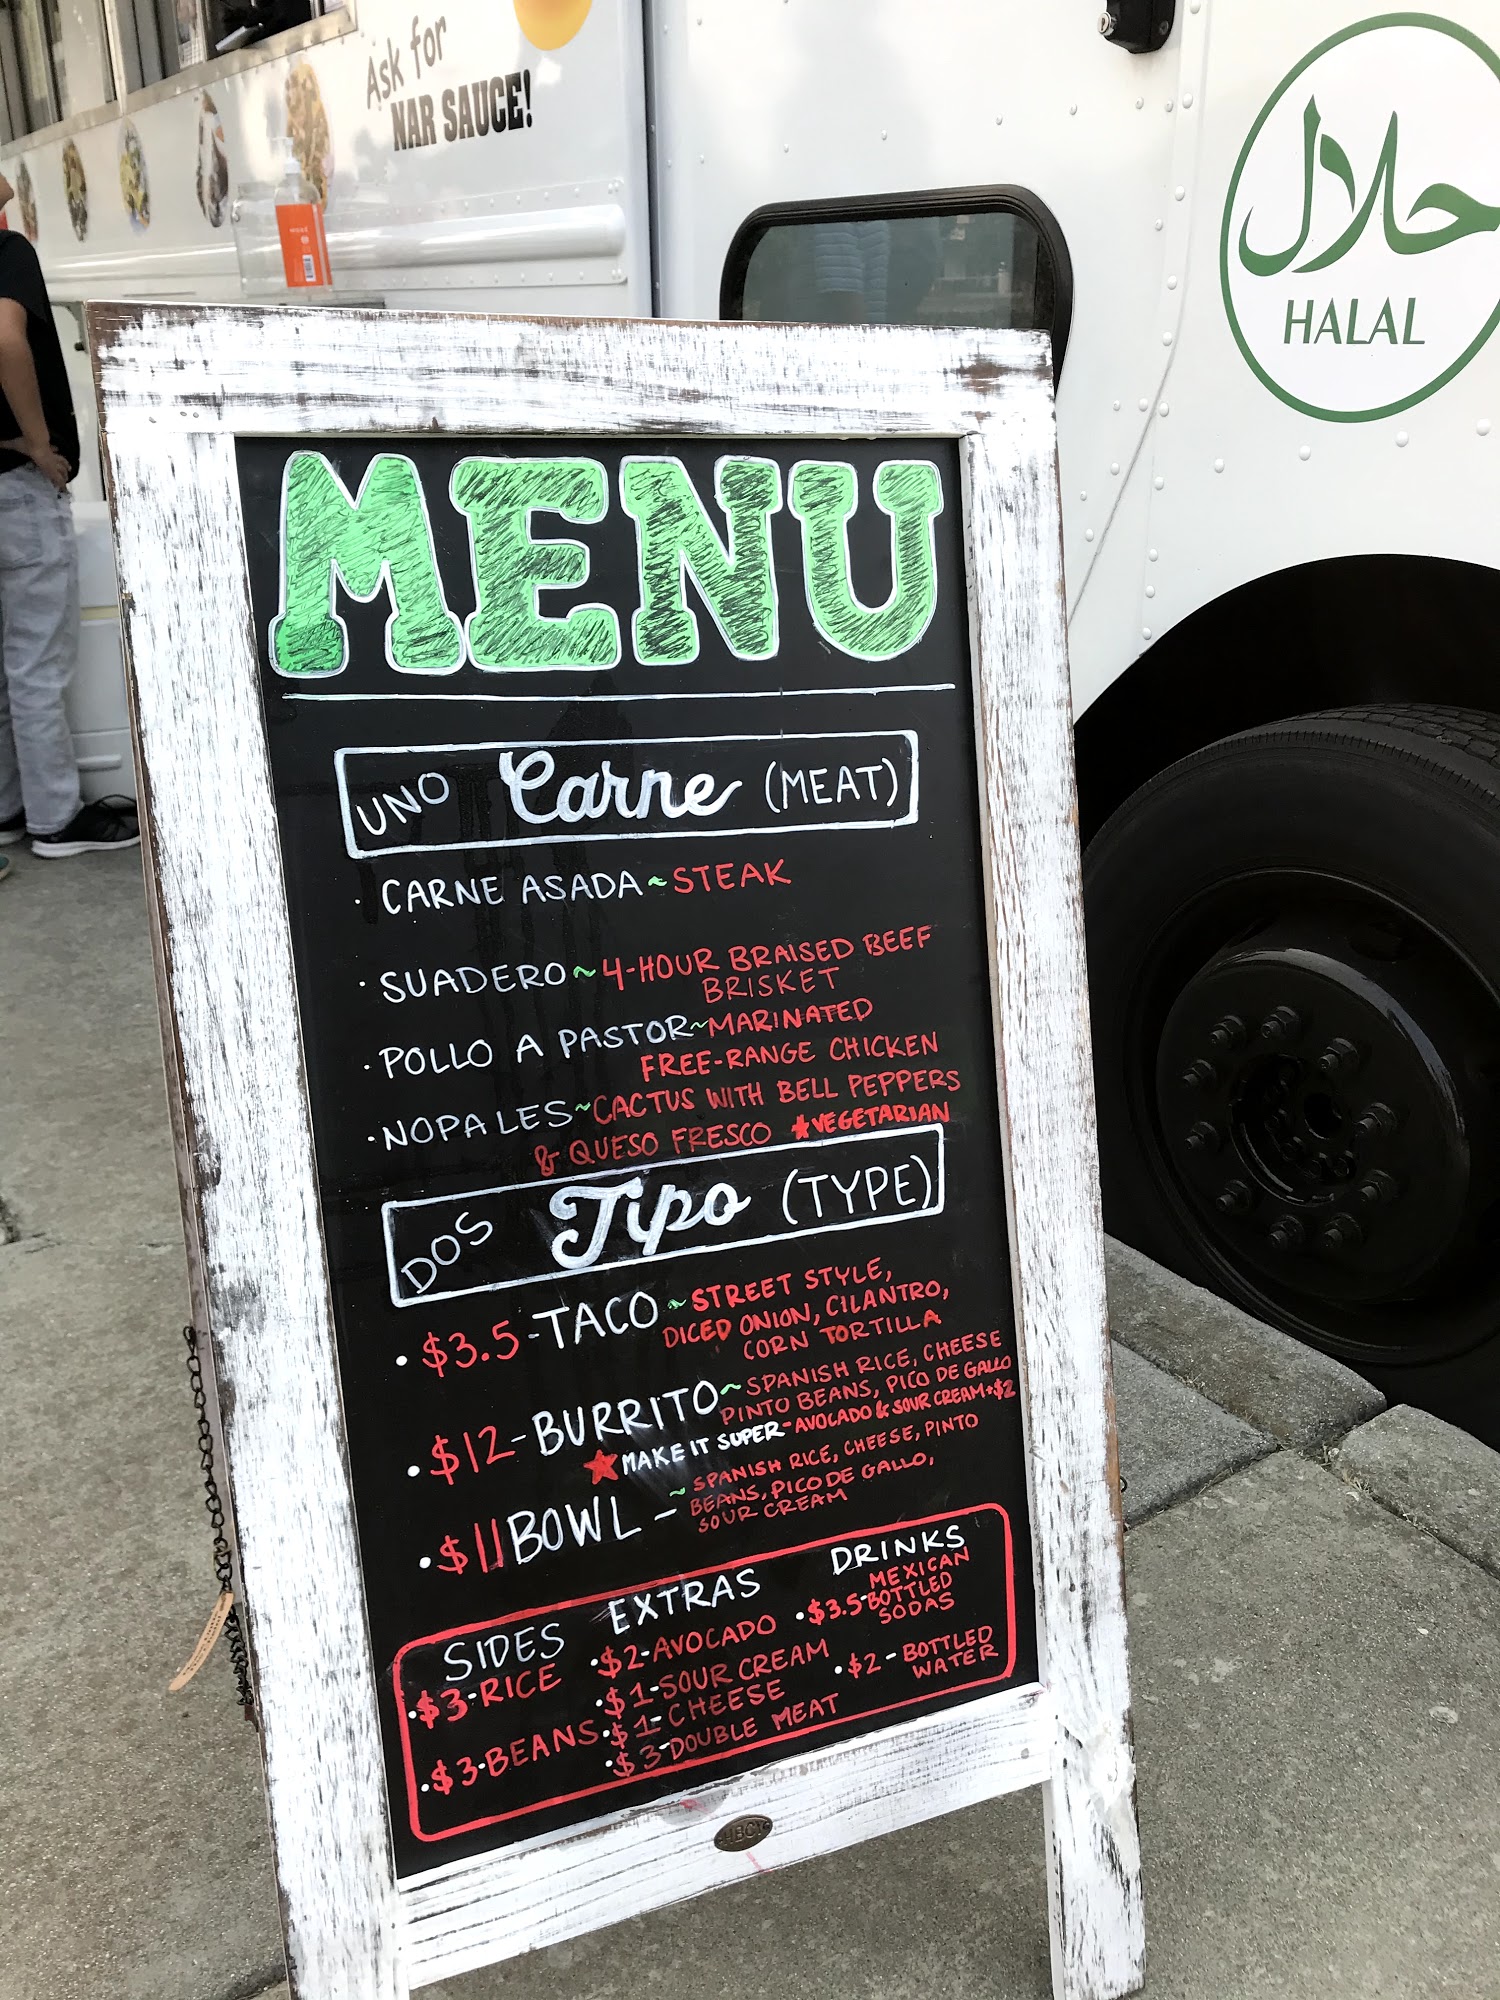 Ask for
NAR SAUCE!
حلال
HALAL
MENU
UNO Carne (MEAT)
· CARNE ASADA ~ STEAK
· SUADERO ~ 4-HOUR BRAISED BEEF
BRISKET
· POLLO A PASTOR ~ MARINATED
FREE-RANGE CHICKEN
· NOPALES ~ CACTUS WITH BELL PEPPERS
& QUESO FRESCO ★VEGETARIAN
DOS Tipo (TYPE)
· $3.5-TACO ~ STREET STYLE,
DICED ONION, CILANTRO,
CORN TORTILLA
· $12-BURRITO ~ SPANISH RICE, CHEESE
PINTO BEANS, PICO DE GALLO
★ MAKE IT SUPER-AVOCADO & SOUR CREAM+$2
· $11 BOWL - ~ SPANISH RICE, CHEESE, PINTO
BEANS, PICO DE GALLO,
SOUR CREAM
SIDES
· $3-RICE
· $3-BEANS
EXTRAS
· $2-AVOCADO
· $1-SOUR CREAM
· $1-CHEESE
· $3-DOUBLE MEAT
DRINKS
· $3.5-MEXICAN
BOTTLED
SODAS
· $2-BOTTLED
WATER